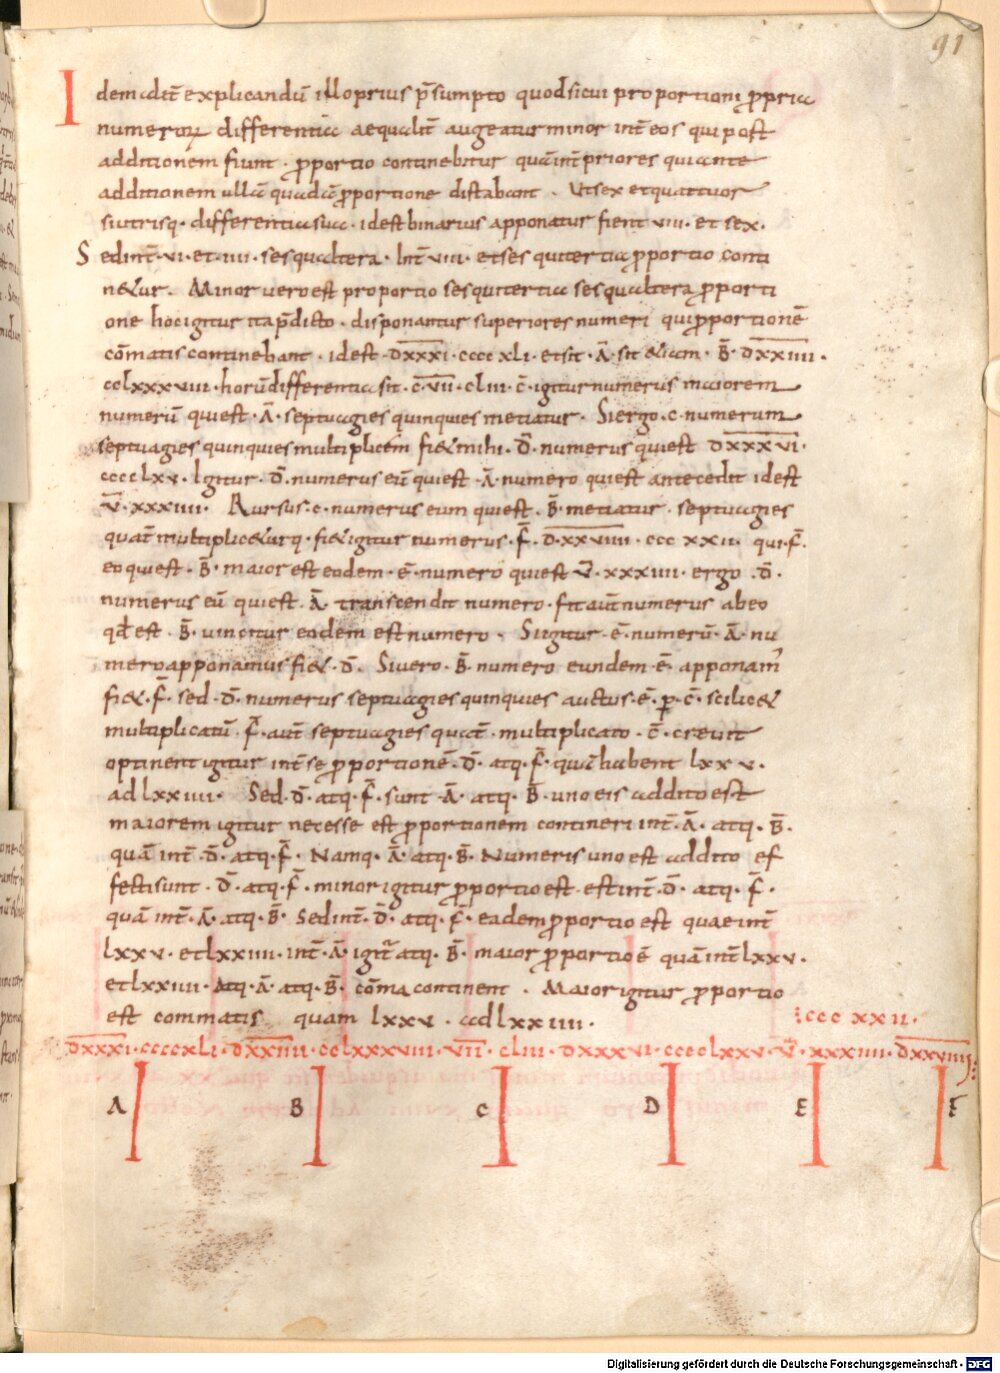 91
I dem adit̄ explicandū illo prius p̄sumpto quod sicui proportioni ppria
numeroꝝ differentia aequalit̄ augeatur minor int̄ eos qui post
additionem fiunt · ꝓportio continebitur quā int̄ priores qui ante
additionem ulla quadā ꝓportione distabant · Ut sex et quattuor
si utrisq· differentia sua · id est binarius apponatur fient viii · et sex ·
S ed int̄ · vi · et · iiii · sesqualtera · Int̄ viii · et ses quitertia ꝓportio conti
n&ur · Minor vero est proportio sesquitertia sesqualtera ꝓporti
one hoc igitur ita p̄dicto · disponantur superiores numeri qui ꝓportionē
cōmatis continebant · idest · D̅X̅X̅X̅I̅ · cccc xli · et sit · Ā · sit &iam · B̄ · D̅X̅X̅I̅I̅I̅I̅ ·
cclxxxviii · horū differentia sit · C̄ · V̅I̅I̅ · cliii · C̄ · igitur numerus maiorem
numerū qui est · Ā · septuagies quinquies metiatur · Si ergo · c · numerum
septuagies quinquies multiplicem fi& mihi · D̄ · numerus qui est D̅X̅X̅X̅V̅I̅ ·
cccclxv · Igitur · D̄ · numerus eū qui est · Ā · numero qui est antecedit idest
V̅ · xxxiiii · Rursus · c · numerus eum qui est · B̄ · metiatur · septuagies
quat̄ multiplic&urq · fi& igitur numerus · F̄ · D̅X̅X̅V̅I̅I̅I̅I̅ · ccc xxii · qui · F̄ ·
eo qui est · B̄ · maior est eodem · Ē · numero qui est V̅ · xxxiiii · ergo · D̄ ·
numerus eū qui est · Ā · transcendit numero · fit aut̄ numerus ab eo
qd̄ est · B̄ · vincitur eodem est numero · Si igitur · Ē · numerū · Ā · nu
mero apponamus fi& · D̄ · Si vero · B̄ · numero eundem · Ē · apponam̓
fi& · F̄ · sed · D̄ · numerus septuagies quinquies auctus · ē · ꝑ · C̄ · scilic&
multiplicatū · F̄ · aut̄ septuagies quat̄ · multiplicato · C̄ · creuit
optinent igitur int̄ se ꝓportionē · D̄ · atq · F̄ · quā habent lxxv ·
ad lxxiiii · Sed · D̄ · atq · F̄ · sunt · Ā · atq · B̄ · uno eis addito est
maiorem igitur necesse est ꝓportionem contineri int̄ · Ā · atq · B̄ ·
quā int̄ · D̄ · atq · F̄ · Namq · Ā · atq · B̄ · Numeris uno est addito ef
fecti sunt · D̄ · atq · F̄ · minor igitur ꝓportio est · est int̄ · D̄ · atq · F̄ ·
quā int̄ · Ā · atq · B̄ · Sed int̄ · D̄ · atq · F̄ · eadem ꝓportio est quae int̄
lxxv · et lxxiiii · int̄ · Ā · igit̄ atq · B̄ · maior ꝓportio ē quā int̄ lxxv ·
et lxxiiii · Atq · Ā · atq · B̄ · cōma continent · Maior igitur ꝓportio
est commatis quam lxxv · ad lxxiiii ·
ccc xxii ·
D̅X̅X̅X̅I̅ · ccccxli · D̅X̅X̅I̅I̅I̅I̅ · cclxxxviii · V̅I̅I̅ · cliii · DXXXVI · cccclxxv · V̅ · xxxiiii · D̅X̅X̅V̅I̅I̅I̅I̅
A B C D E F
Digitalisierung gefördert durch die Deutsche Forschungsgemeinschaft - DFG